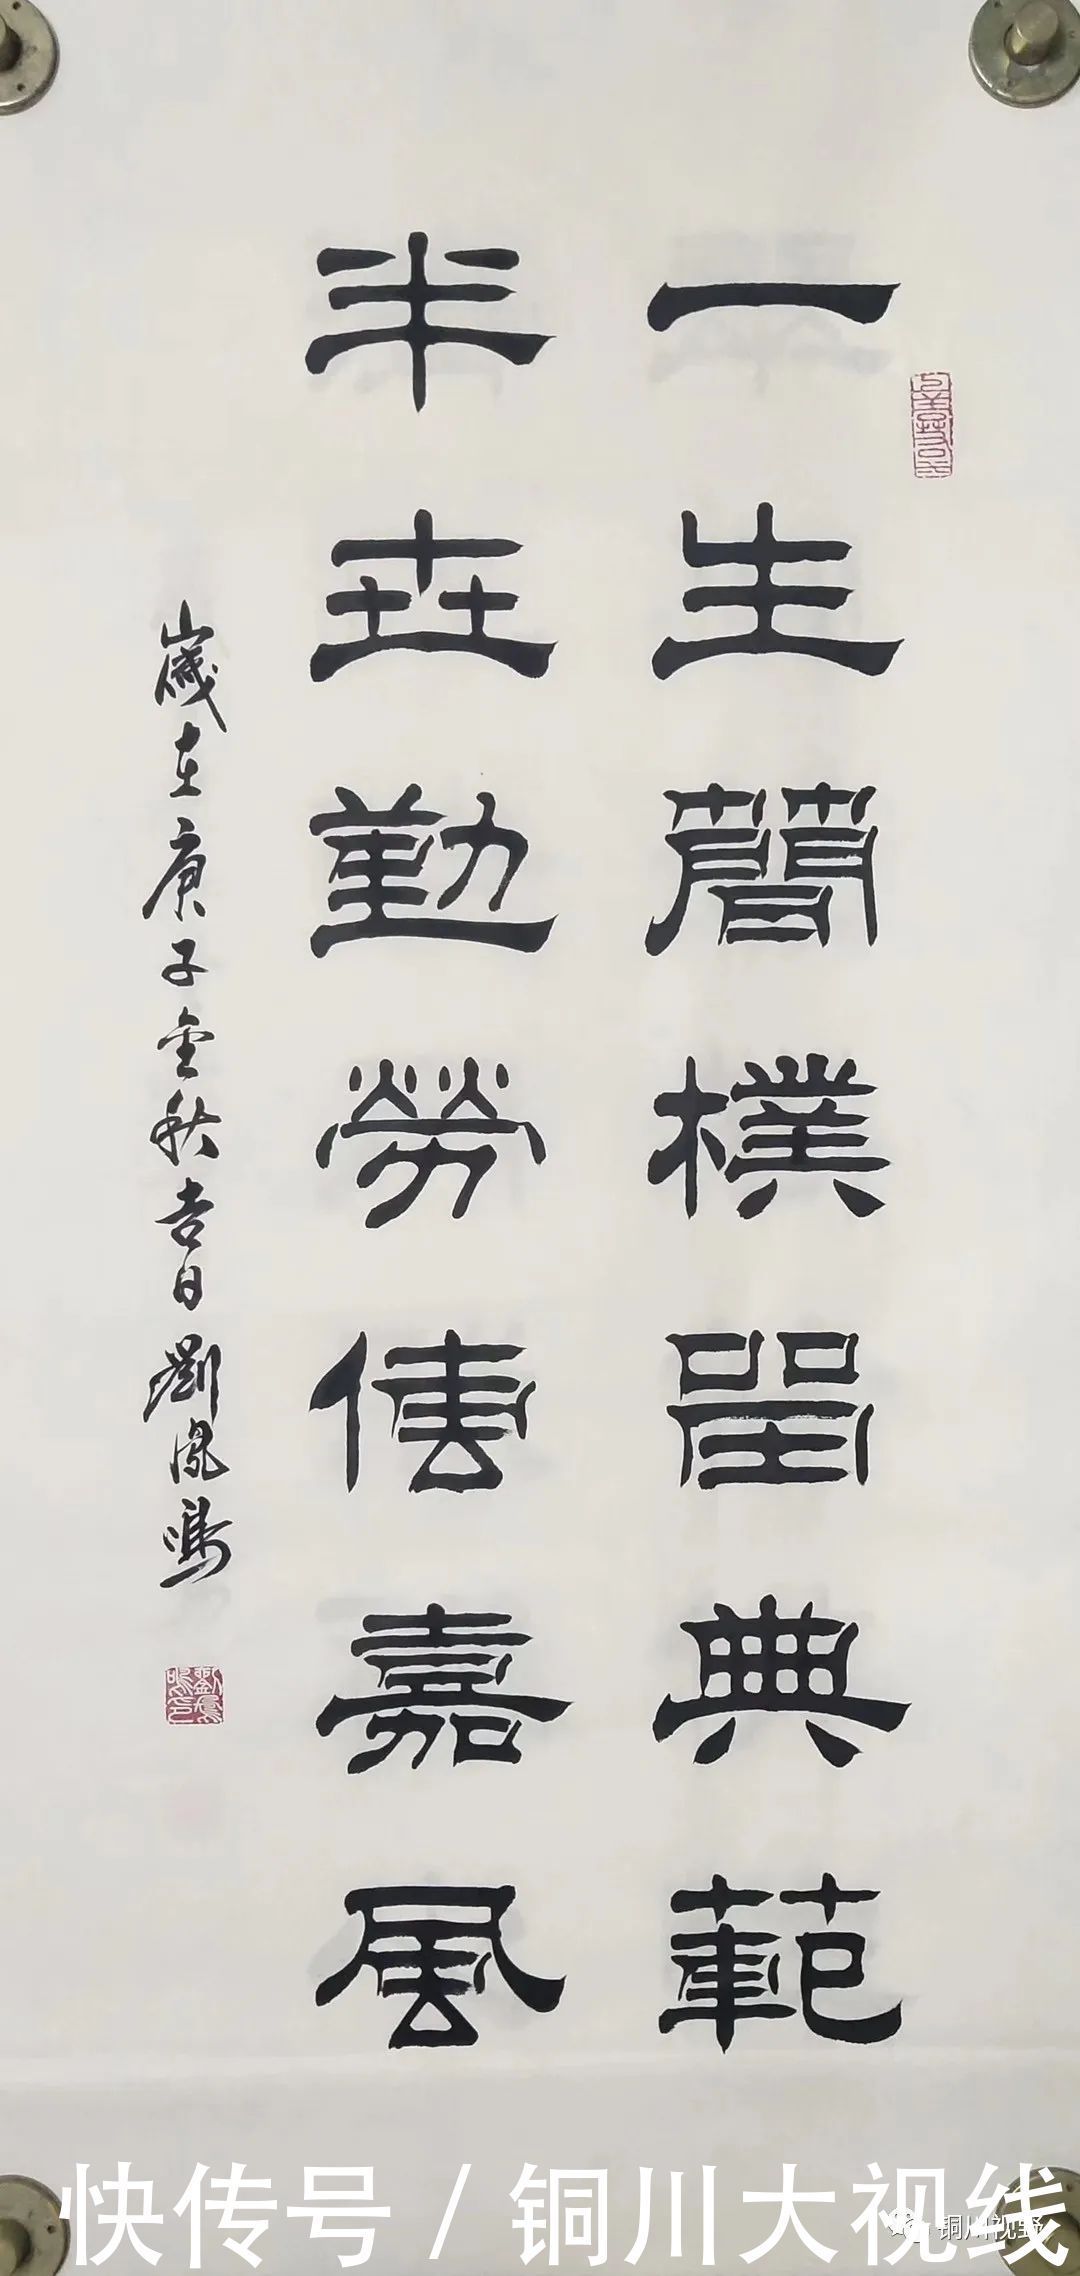 一生簡樸留典範
半世勤勞傳嘉風
歲在庚子金秋吉日劉鳳鳴
快传号 / 铜川大视线
铜川视野